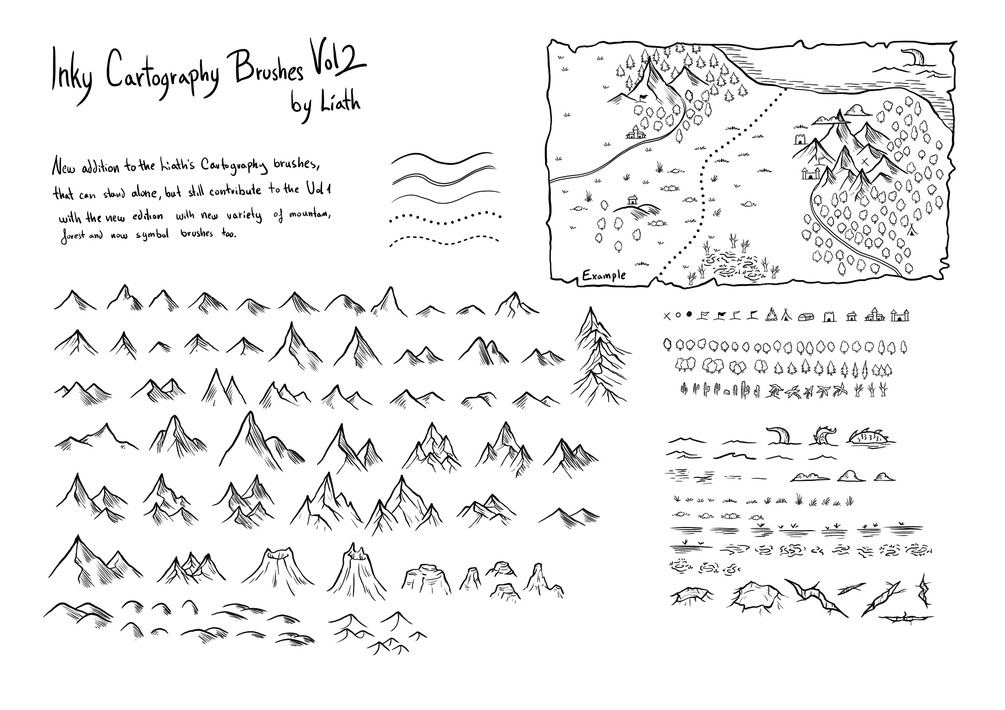 Inky Cartography Brushes Vol2
by Liath
New addition to the Liath's Cartography brushes,
that can stand alone, but still contribute to the Vol 1
with the new edition with new variety of mountain,
forest and now symbol brushes too.
Example